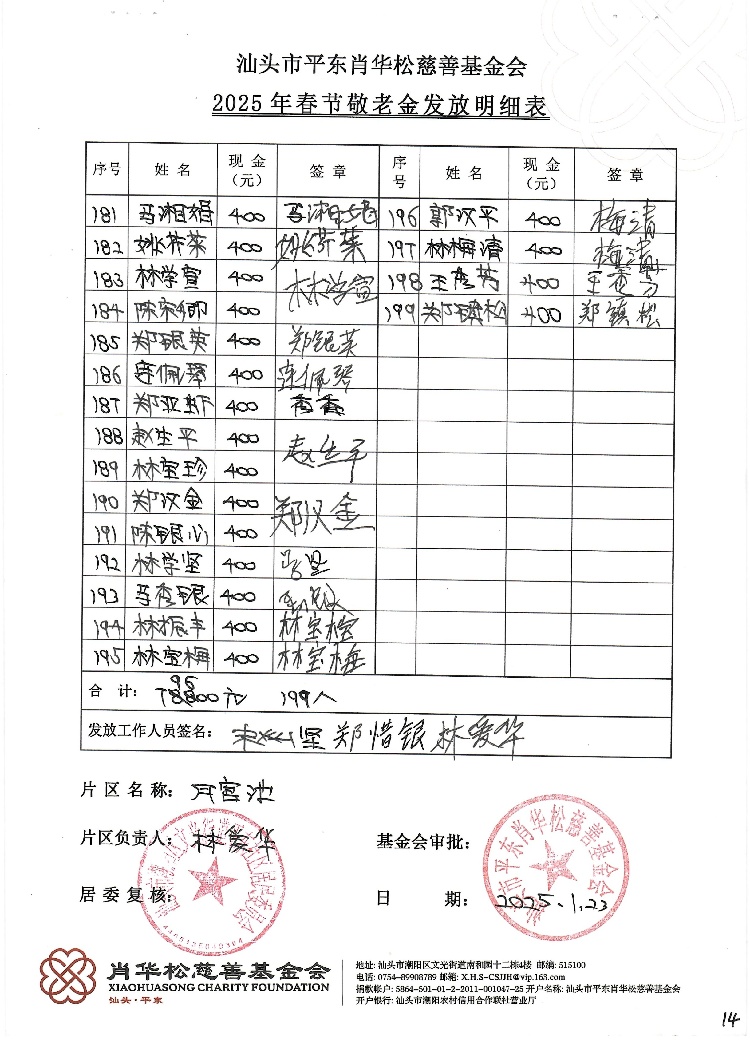 汕头市平东肖华松慈善基金会
2025年春节敬老金发放明细表
序号 姓名 现金(元) 签章 序号 姓名 现金(元) 签章
181 马湘娟 400 马湘娟 196 郭汉平 400 梅清
182 姚芬菜 400 姚芬菜 197 林梅清 400 梅清
183 林学宣 400 198 王 芳 400 王
184 陈 卿 400 林学宣 199 郑镇松 400 郑镇松
185 郑银英 400 郑银英
186 连佩琴 400 连佩琴
187 郑亚虾 400
188 赵生平 400 赵生平
189 林宝珍 400
190 郑汉金 400 郑汉金
191 陈银心 400
192 林学坚 400 学坚
193 马 银 400
194 林振丰 400 林宝
195 林宝梅 400 林宝梅
合计: 元 199人
发放工作人员签名: 坚 郑惜银 林爱华
片区名称: 月宫池
片区负责人: 林爱华 基金会审批:
居委复核: 日期: 2025.1.23
汕头市平东肖华松慈善基金会
肖华松慈善基金会
XIAOHUASONG CHARITY FOUNDATION
汕头·平东
地址: 汕头市潮阳区文光街道南和园十二栋4楼 邮编: 515100
电话: 0754-89908789 邮箱: X.H.S-CSJJH@vip.163.com
捐款帐户: 5864-501-01-2-2011-001047-25 开户名称: 汕头市平东肖华松慈善基金会
开户银行: 汕头市潮阳农村信用合作联社营业厅
14